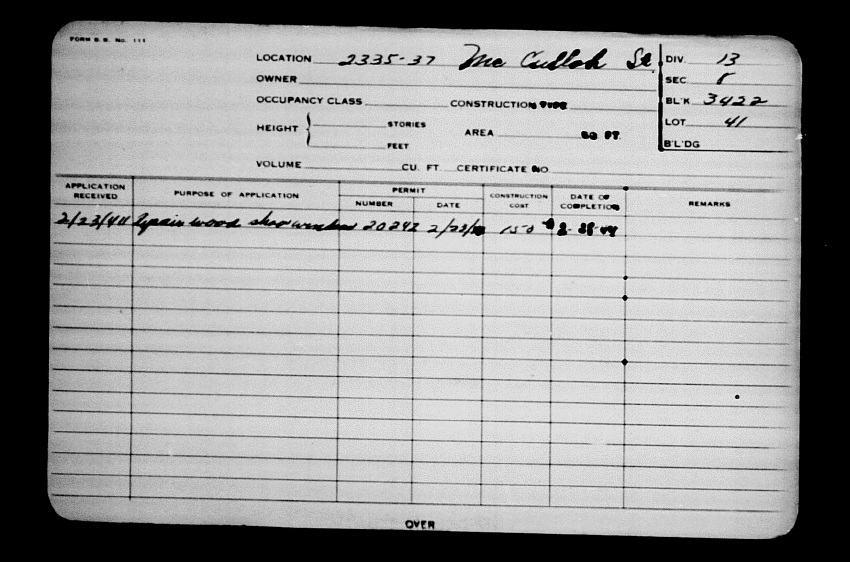 FORM B. B. No. 111
LOCATION 2335-37 Mc Culloh St.
DIV. 13
OWNER
SEC 8
OCCUPANCY CLASS CONSTRUCTION TYPE
BL'K 3422
HEIGHT STORIES FEET
AREA SQ FT.
LOT 41
B'L'DG
VOLUME CU. FT CERTIFICATE NO.
APPLICATION RECEIVED PURPOSE OF APPLICATION PERMIT NUMBER DATE CONSTRUCTION COST DATE OF COMPLETION REMARKS
2/23/44 Repair wood show window 20242 2/23/ 150
OVER